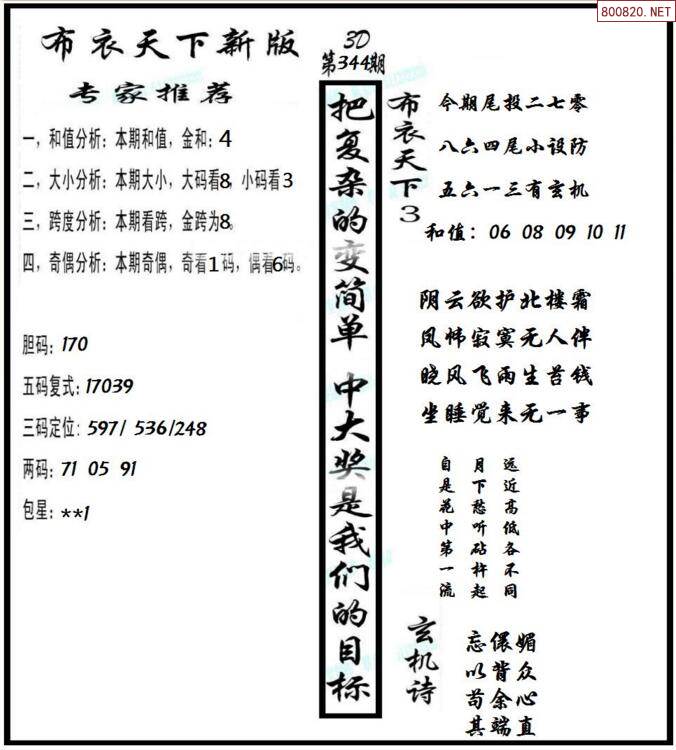 800820.NET
布衣天下新版
专家推荐
一，和值分析：本期和值，金和：4
二，大小分析：本期大小，大码看8，小码看3
三，跨度分析：本期看跨，金跨为8。
四，奇偶分析：本期奇偶，奇看1码，偶看6码。
胆码：170
五码复式：17039
三码定位：597/ 536/248
两码：71 05 91
包星：**1
3D
第344期
把复杂的变简单 中大奖是我们的目标
布衣天下3
今期尾投二七零
八六四尾小设防
五六一三有玄机
和值：06 08 09 10 11
阴云欲护北楼霜
凤帏寂寞无人伴
晓风飞雨生苔钱
坐睡觉来无一事
远近高低各不同
月下愁听砧杵起
自是花中第一流
玄机诗
忘偎媚
以背众
苟余心
其端直